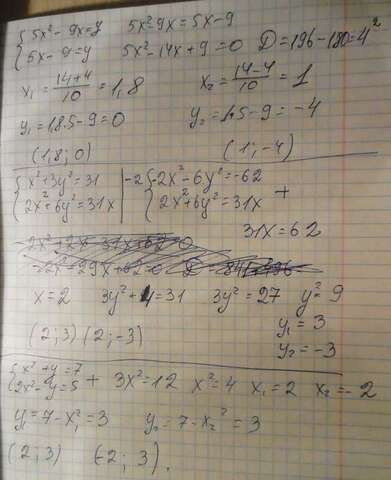 {5x² - 9x = y 5x² - 9x = 5x - 9
{5x - 9 = y 5x² - 14x + 9 = 0 D = 196 - 180 = 4²
x₁ = (14+4)/10 = 1,8 x₂ = (14-4)/10 = 1
y₁ = 1,8·5 - 9 = 0 y₂ = 1·5 - 9 = -4
(1,8; 0) (1; -4)
{x² + 3y² = 31 |-2 {-2x² - 6y² = -62
{2x² + 6y² = 31x {2x² + 6y² = 31x +
31x = 62
x = 2 3y² + 4 = 31 3y² = 27 y² = 9
(2; 3) (2; -3) y₁ = 3
y₂ = -3
{x² + y = 7
{2x² - y = 5 + 3x² = 12 x² = 4 x₁ = 2 x₂ = -2
y₁ = 7 - x₁² = 3 y₂ = 7 - x₂² = 3
(2; 3) (-2; 3).